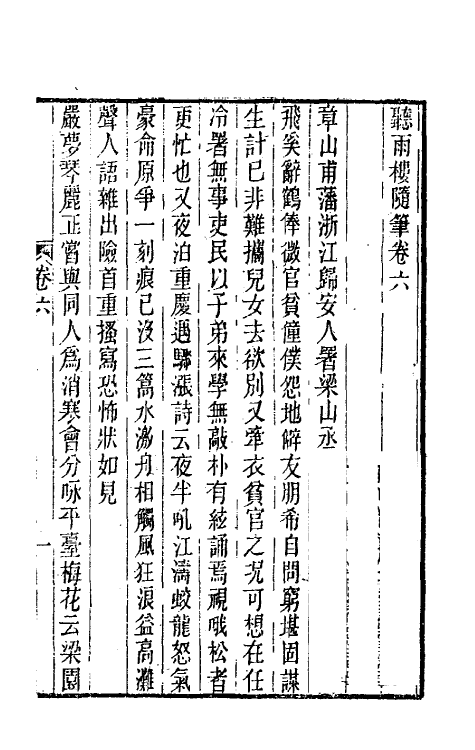 聽雨樓隨筆卷六
章山甫藩浙江歸安人署梁山丞
飛奚辭鶴俸微官貧僮僕怨地僻友朋希自問窮堪固謀
生計已非難攜兒女去欲別又牽衣貧官之况可想在任
冷署無事吏民以子弟來學無敲朴有絃誦焉視哦松者
更忙也又夜泊重慶遇驟漲詩云夜半吼江濤蛟龍怒氣
豪命原爭一刻痕已沒三篙水激舟相觸風狂浪益高灘
聲人語雜出險首重搔寫恐怖狀如見
嚴夢琴麗正嘗與同人爲消寒會分咏平臺梅花云梁園
卷六
一